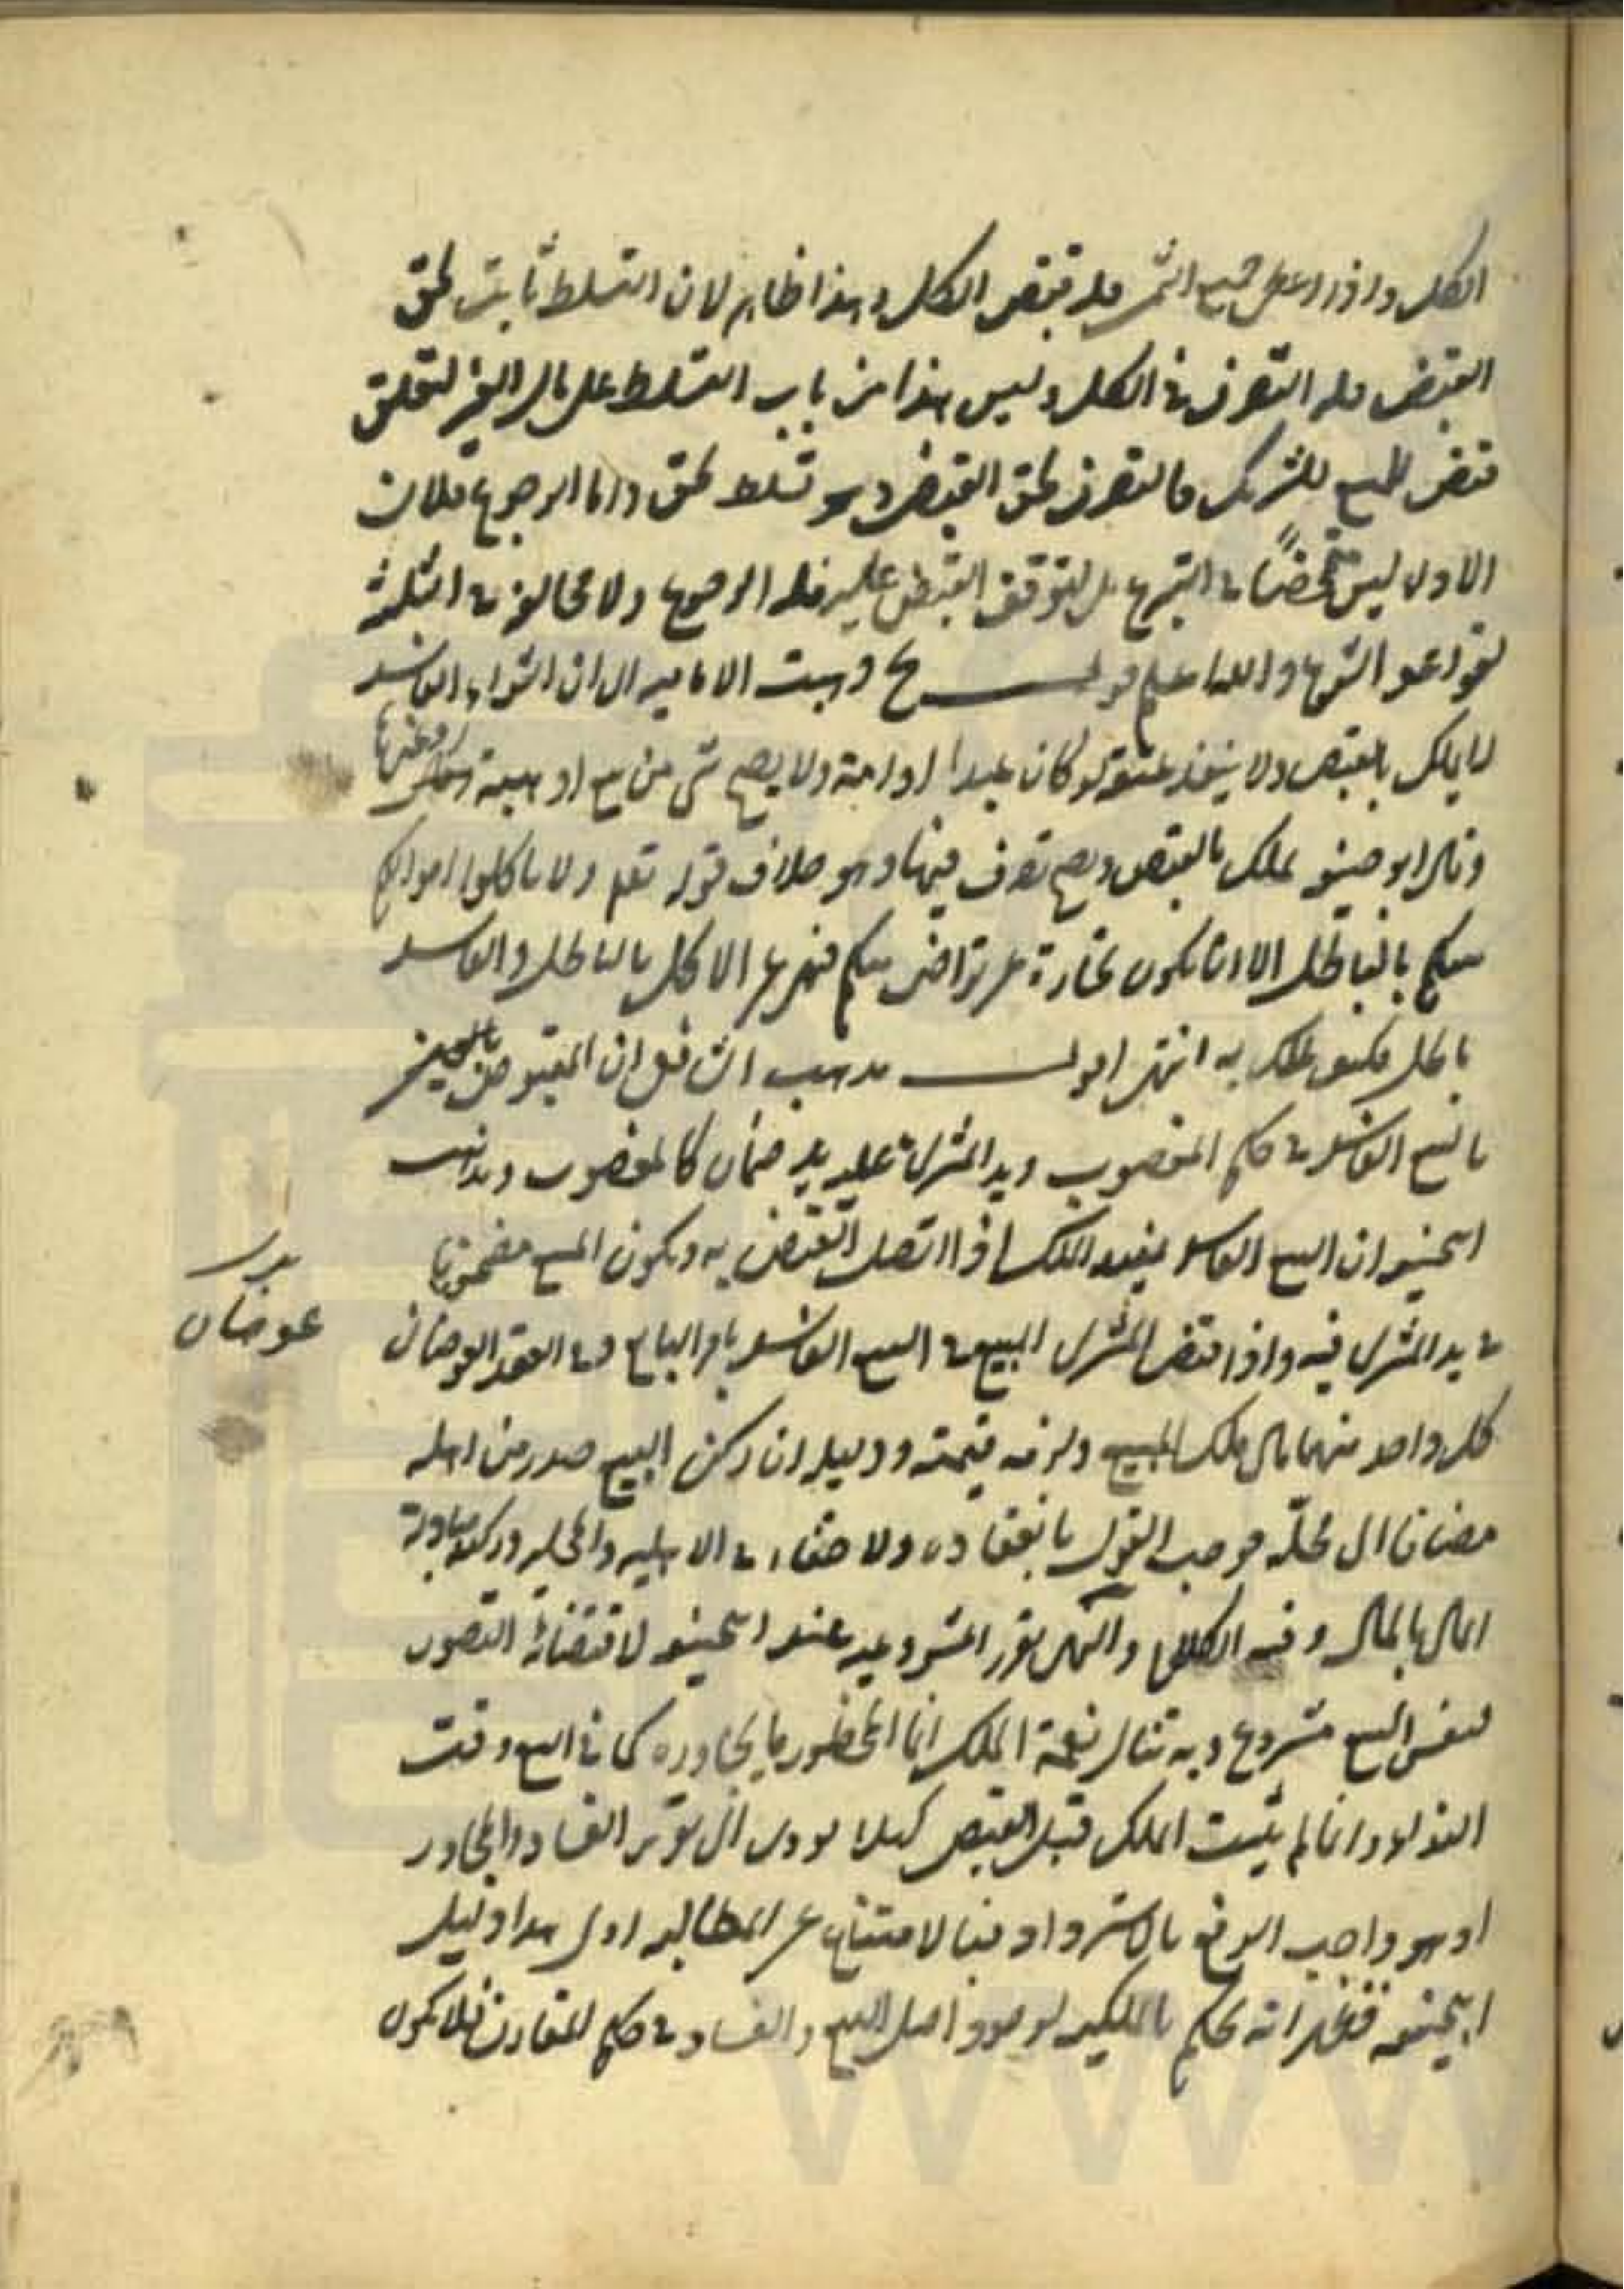 الكل واذا اعطى جميع الثمن فله قبض الكل وهذا ظاهر لان التسلط ثابت بحق
القبض فله التصرف في الكل وليس هذا من باب التسلط على مال الغير لتعلق
قبض المبيع للشريك فالتصرف بحق القبض وهو تسلط بحق واما الرجوع فلان
الاداء ليس محضا في التبرع بل لتوقف القبض عليه فله الرجوع ولا مخالفة في الثلثة
لقواعد الشرع والله اعلم قولـــه ح ذهبت الامامية الى ان الشراء الفاسد
لا يملك بالقبض ولا ينفذ عتقه لو كان عبدا او امة ولا يصح شئ من بيع او هبة وغيرها
وقال ابو حنيفه يملك بالقبض ويصح تصرف فيها وهو خلاف قوله تعالى ولا تاكلوا اموالكم
بينكم بالباطل الا ان تكون تجارة عن تراض منكم فنهى عن الاكل بالباطل والفاسد
باطل فكيف يملك به انتهى اقولـــ مذهب الشافعي ان المقبوض
بالبيع الفاسد في حكم المغصوب ويد المشتري عليه يد ضمان كالمغصوب ومذهب
ابيحنيفه ان البيع الفاسد يفيد الملك اذا اتصل القبض به ويكون المبيع مضمونا
في يد المشتري فيه واذا قبض المشتري المبيع في البيع الفاسد بامر البايع وفي العقد العوضان
عوضان
كل واحد منهما مال ملك المبيع ولزمه قيمته ودليله ان ركن البيع صدر من اهله
مضافا الى محله فوجب القول بانعقاده ولا خفاء في الاهليه والمحليه وركنه مبادلة
المال بالمال وفيه الكلام والنهي يقرر المشروعيه عند ابيحنيفه لاقتضائه التصور
فنفس البيع مشروع وبه تنال نعمة الملك انما المحظور ما يجاوره كما في البيع وقت
النداء وانما لم يثبت الملك قبل القبض كيلا يؤدى الى تقرير الفساد المجاور
اذ هو واجب الرفع بالاسترداد فبالامتناع عن المطالبه اولى هذا دليل
ابيحنيفه فظهر انه يحكم بالملكيه لوجود اصل البيع والفساد في حكم المقارن فلا يكون